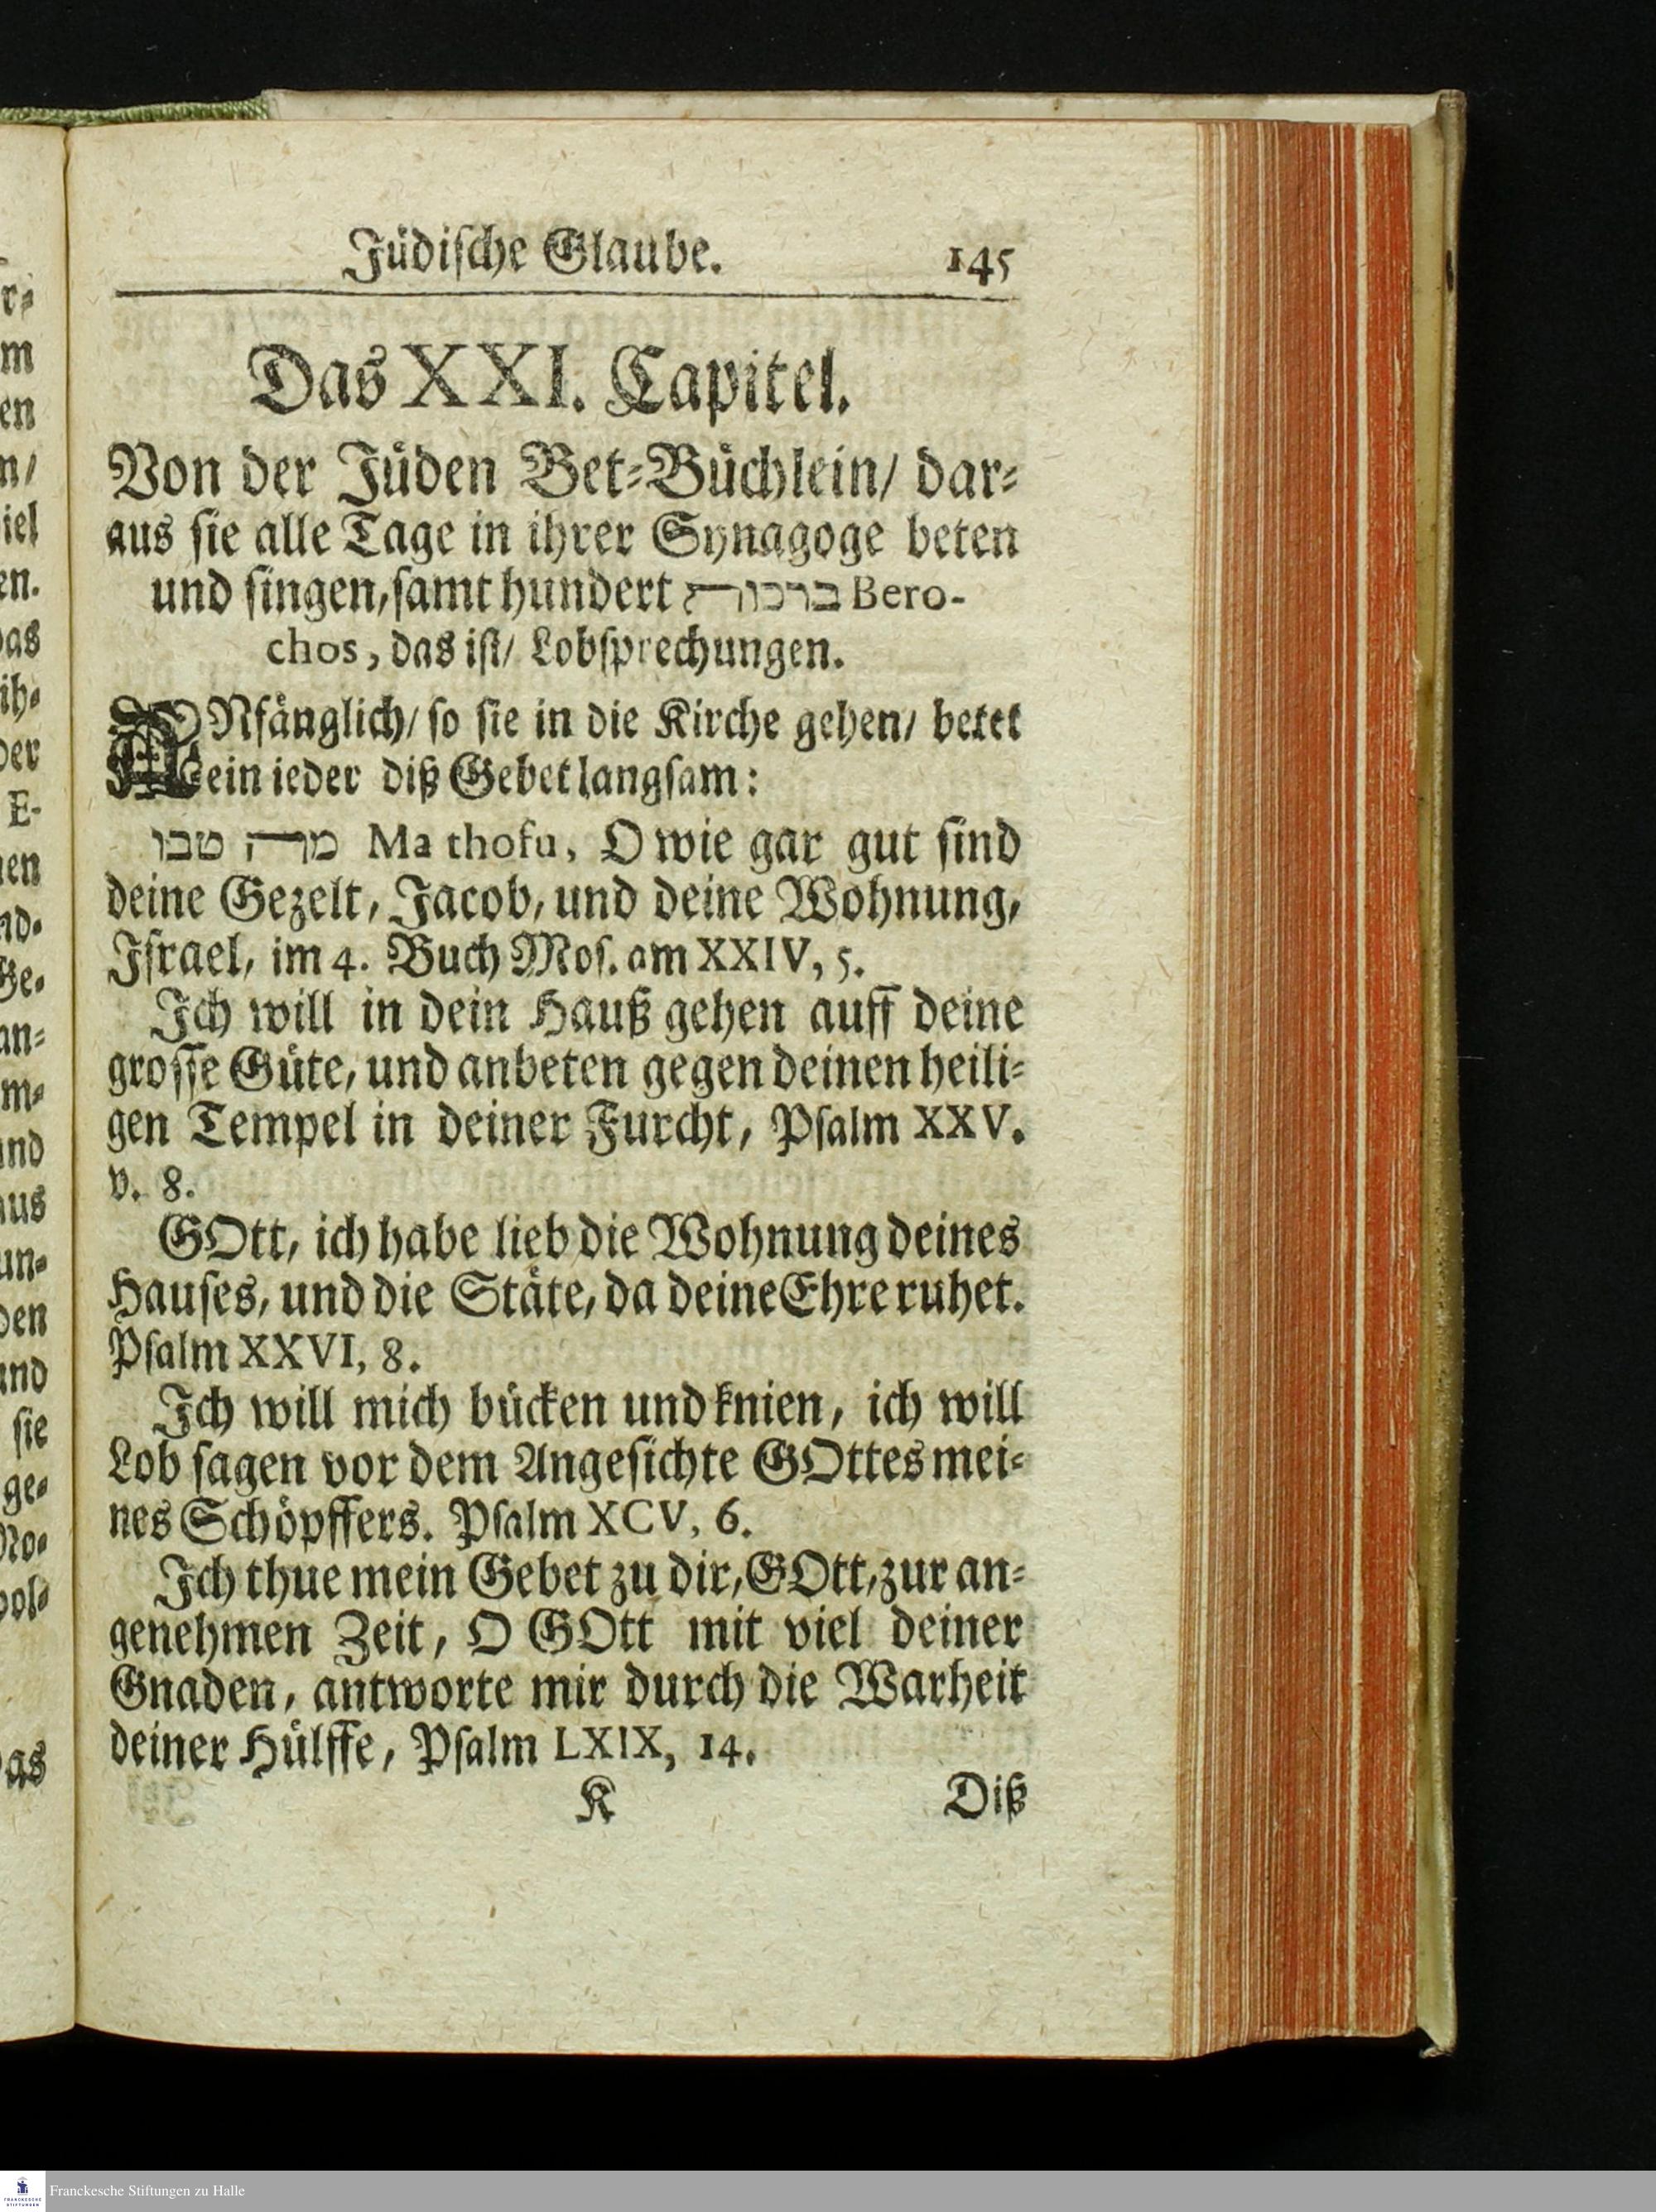 Jüdische Glaube. 145
Das XXI. Capitel.
Von der Jüden Bet-Büchlein/ dar-
aus sie alle Tage in ihrer Synagoge beten
und singen, samt hundert ברכות Bero-
chos, das ist/ Lobsprechungen.
ANfänglich/ so sie in die Kirche gehen/ betet
ein ieder diß Gebet langsam:
מה טבו Ma thofu, O wie gar gut sind
deine Gezelt, Jacob, und deine Wohnung,
Israel, im 4. Buch Mos. am XXIV, 5.
Ich will in dein Hauß gehen auff deine
grosse Güte, und anbeten gegen deinen heili-
gen Tempel in deiner Furcht, Psalm XXV.
v. 8.
GOtt, ich habe lieb die Wohnung deines
Hauses, und die Stäte, da deine Ehre ruhet.
Psalm XXVI, 8.
Ich will mich bücken und knien, ich will
Lob sagen vor dem Angesichte GOttes mei-
nes Schöpffers. Psalm XCV, 6.
Ich thue mein Gebet zu dir, GOtt, zur an-
genehmen Zeit, O GOtt mit viel deiner
Gnaden, antworte mir durch die Warheit
deiner Hülffe, Psalm LXIX, 14.
K Diß
Franckesche Stiftungen zu Halle